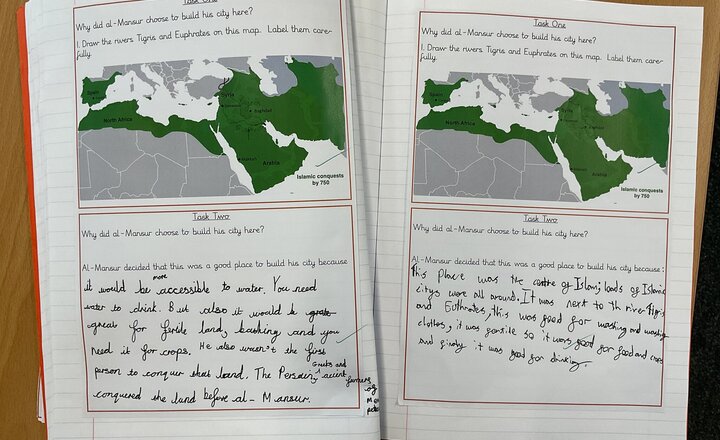 Task One
Why did al-Mansur choose to build his city here?
1. Draw the rivers Tigris and Euphrates on this map. Label them care-
fully.
Spain
Syria
Baghdad
North Africa
Makkah
Arabia
Islamic conquests
by 750
Task Two
Why did al-Mansur choose to build his city here?
Al-Mansur decided that this was a good place to build his city because
more
it would be accessible to water. You need
water to drink. But also it would be grate
great for fertile land, bathing and you
need it for crops. He also wasn't the first
person to conquer that land. The Persain, Greeks and
acient farmers
of
conquered the land before al-Mansur.
Task One
Why did al-Mansur choose to build his city here?
1. Draw the rivers Tigris and Euphrates on this map. Label them care-
fully.
Spain
Syria
Baghdad
North Africa
Makkah
Arabia
Islamic conquests
by 750
Task Two
Why did al-Mansur choose to build his city here?
Al-Mansur decided that this was a good place to build his city because:
this place was the centre of Islam, loads of Islamic
citys were all around. It was next to th river Tigris
and Euthrates, this was good for washing and washing
clothes, it was good for food and
and it was good for drinking.